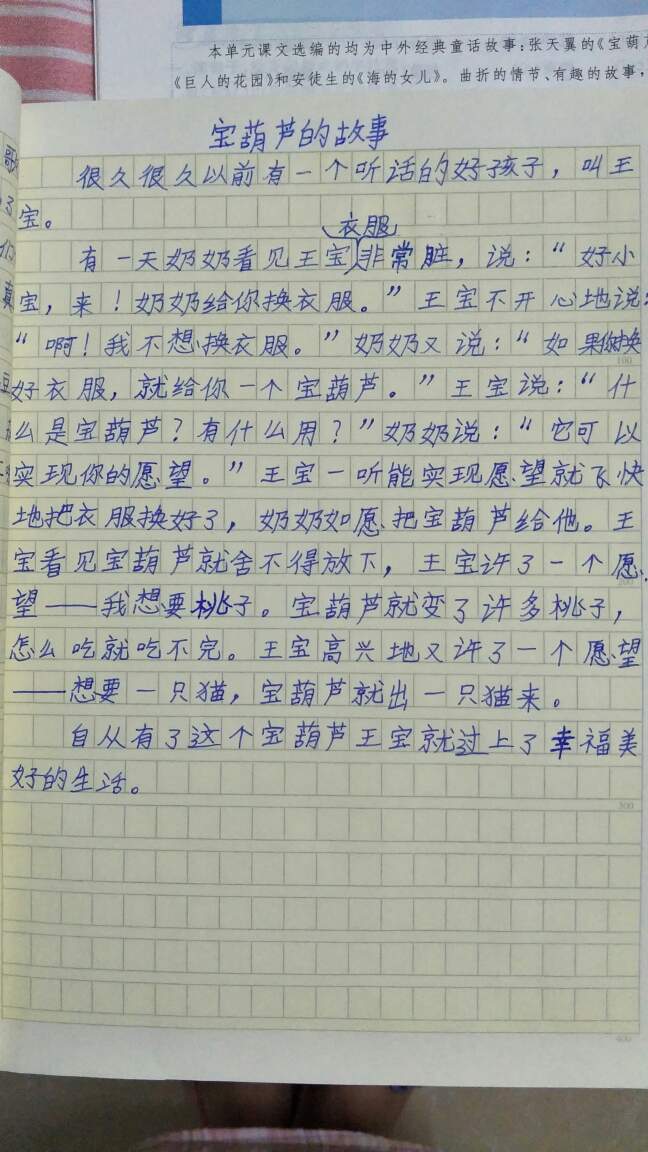 本单元课文选编的均为中外经典童话故事：张天翼的《宝葫
《巨人的花园》和安徒生的《海的女儿》。曲折的情节、有趣的故事，
宝葫芦的故事
很久很久以前有一个听话的好孩子，叫王
宝。
衣服
有一天奶奶看见王宝非常脏，说：“好小
宝，来！奶奶给你换衣服。”王宝不开心地说：
“啊！我不想换衣服。”奶奶又说：“如果你换
100
好衣服，就给你一个宝葫芦。”王宝说：“什
么是宝葫芦？有什么用？”奶奶说：“它可以
实现你的愿望。”王宝一听能实现愿望就飞快
地把衣服换好了，奶奶如愿把宝葫芦给他。王
宝看见宝葫芦就舍不得放下，王宝许了一个愿
200
望——我想要桃子。宝葫芦就变了许多桃子，
怎么吃就吃不完。王宝高兴地又许了一个愿望
——想要一只猫，宝葫芦就出一只猫来。
自从有了这个宝葫芦王宝就过上了幸福美
好的生活。
300
400